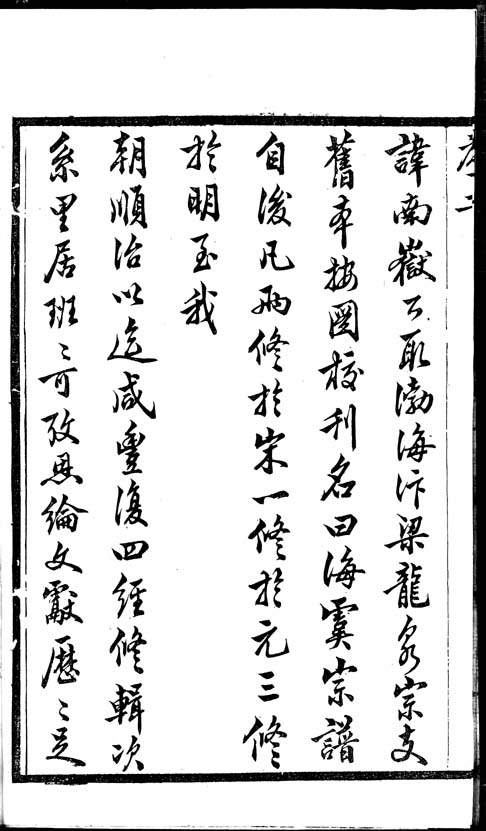 諱南嶽公取渤海汴梁龍泉宗支
舊本按圖校刊名曰海虞宗譜
自後凡兩修於宋一修於元三修
於明至我
朝順治以迄咸豐復四經修輯次
系里居班〻可攷恩綸文獻歷〻足